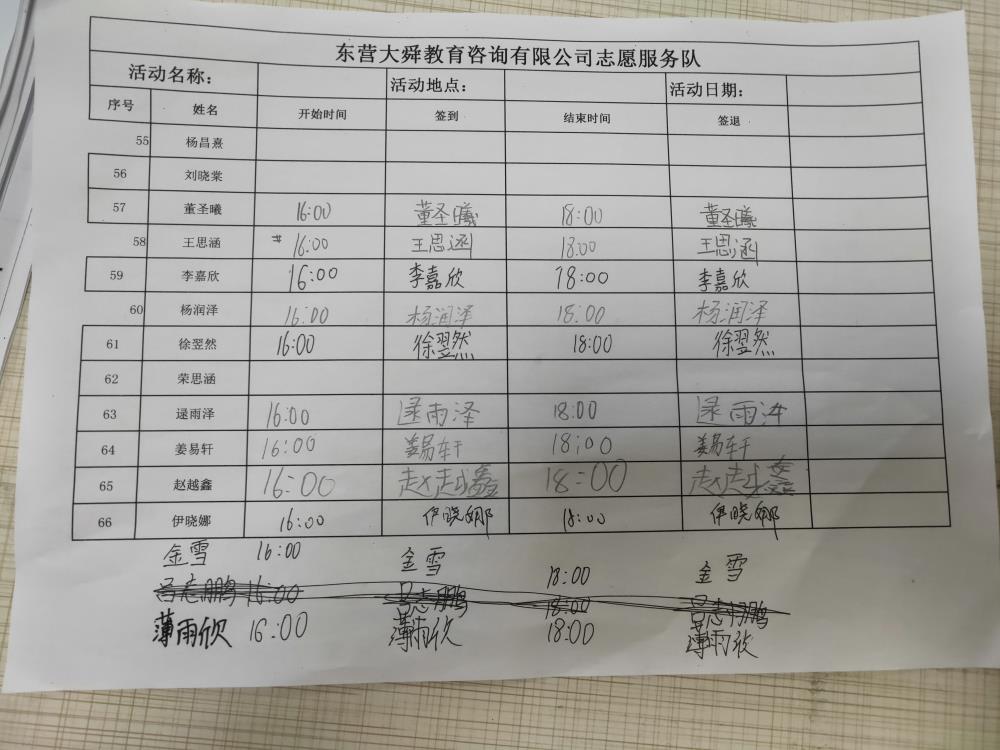 东营大舜教育咨询有限公司志愿服务队
活动名称： 活动地点： 活动日期：
序号 姓名 开始时间 签到 结束时间 签退
55 杨昌熹
56 刘晓棠
57 董圣曦 16:00 董圣曦 18:00 董圣曦
58 王思涵 16:00 王思涵 18:00 王思涵
59 李嘉欣 16:00 李嘉欣 18:00 李嘉欣
60 杨润泽 16:00 杨润泽 18:00 杨润泽
61 徐翌然 16:00 徐翌然 18:00 徐翌然
62 荣思涵
63 逯雨泽 16:00 逯雨泽 18:00 逯雨泽
64 姜易轩 16:00 姜易轩 18:00 姜易轩
65 赵越鑫 16:00 赵越鑫 18:00 赵越鑫
66 伊晓娜 16:00 伊晓娜 18:00 伊晓娜
金雪 16:00 金雪 18:00 金雪
吕志鹏 16:00 吕志鹏 18:00 吕志鹏
薄雨欣 16:00 薄雨欣 18:00 薄雨欣